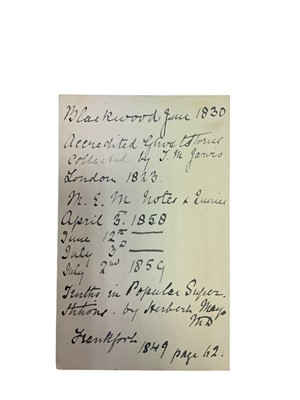 Blackwood June 1830
Accredited Ghost Stories
collected by T. M. Jarvis
London 1823
M. E. M Notes & Queries
April 5. 1858
June 12th
July 3d
July 2nd 1859
Truths in Popular Super
stitions. by Herbert Mayo
MD
Frankfort
1849 page 62.